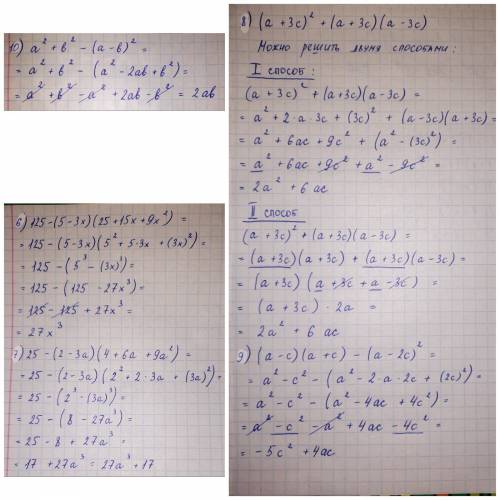 10) a² + b² - (a - b)² =
= a² + b² - (a² - 2ab + b²) =
= a² + b² - a² + 2ab - b² = 2ab
6) 125 - (5 - 3x)(25 + 15x + 9x²) =
= 125 - (5 - 3x)(5² + 5·3x + (3x)²) =
= 125 - (5³ - (3x)³) =
= 125 - (125 - 27x³) =
= 125 - 125 + 27x³ =
= 27x³
7) 25 - (2 - 3a)(4 + 6a + 9a²) =
= 25 - (2 - 3a)(2² + 2·3a + (3a)²) =
= 25 - (2³ - (3a)³) =
= 25 - (8 - 27a³) =
= 25 - 8 + 27a³ =
= 17 + 27a³ = 27a³ + 17
8) (a + 3c)² + (a + 3c)(a - 3c)
Можно решить двумя способами:
I способ:
(a + 3c)² + (a + 3c)(a - 3c) =
= a² + 2·a·3c + (3c)² + (a - 3c)(a + 3c) =
= a² + 6ac + 9c² + (a² - (3c)²) =
= a² + 6ac + 9c² + a² - 9c² =
= 2a² + 6ac
II способ
(a + 3c)² + (a + 3c)(a - 3c) =
= (a + 3c)(a + 3c) + (a + 3c)(a - 3c) =
= (a + 3c)(a + 3c + a - 3c) =
= (a + 3c)·2a =
= 2a² + 6ac
9) (a - c)(a + c) - (a - 2c)² =
= a² - c² - (a² - 2·a·2c + (2c)²) =
= a² - c² - (a² - 4ac + 4c²) =
= a² - c² - a² + 4ac - 4c² =
= -5c² + 4ac